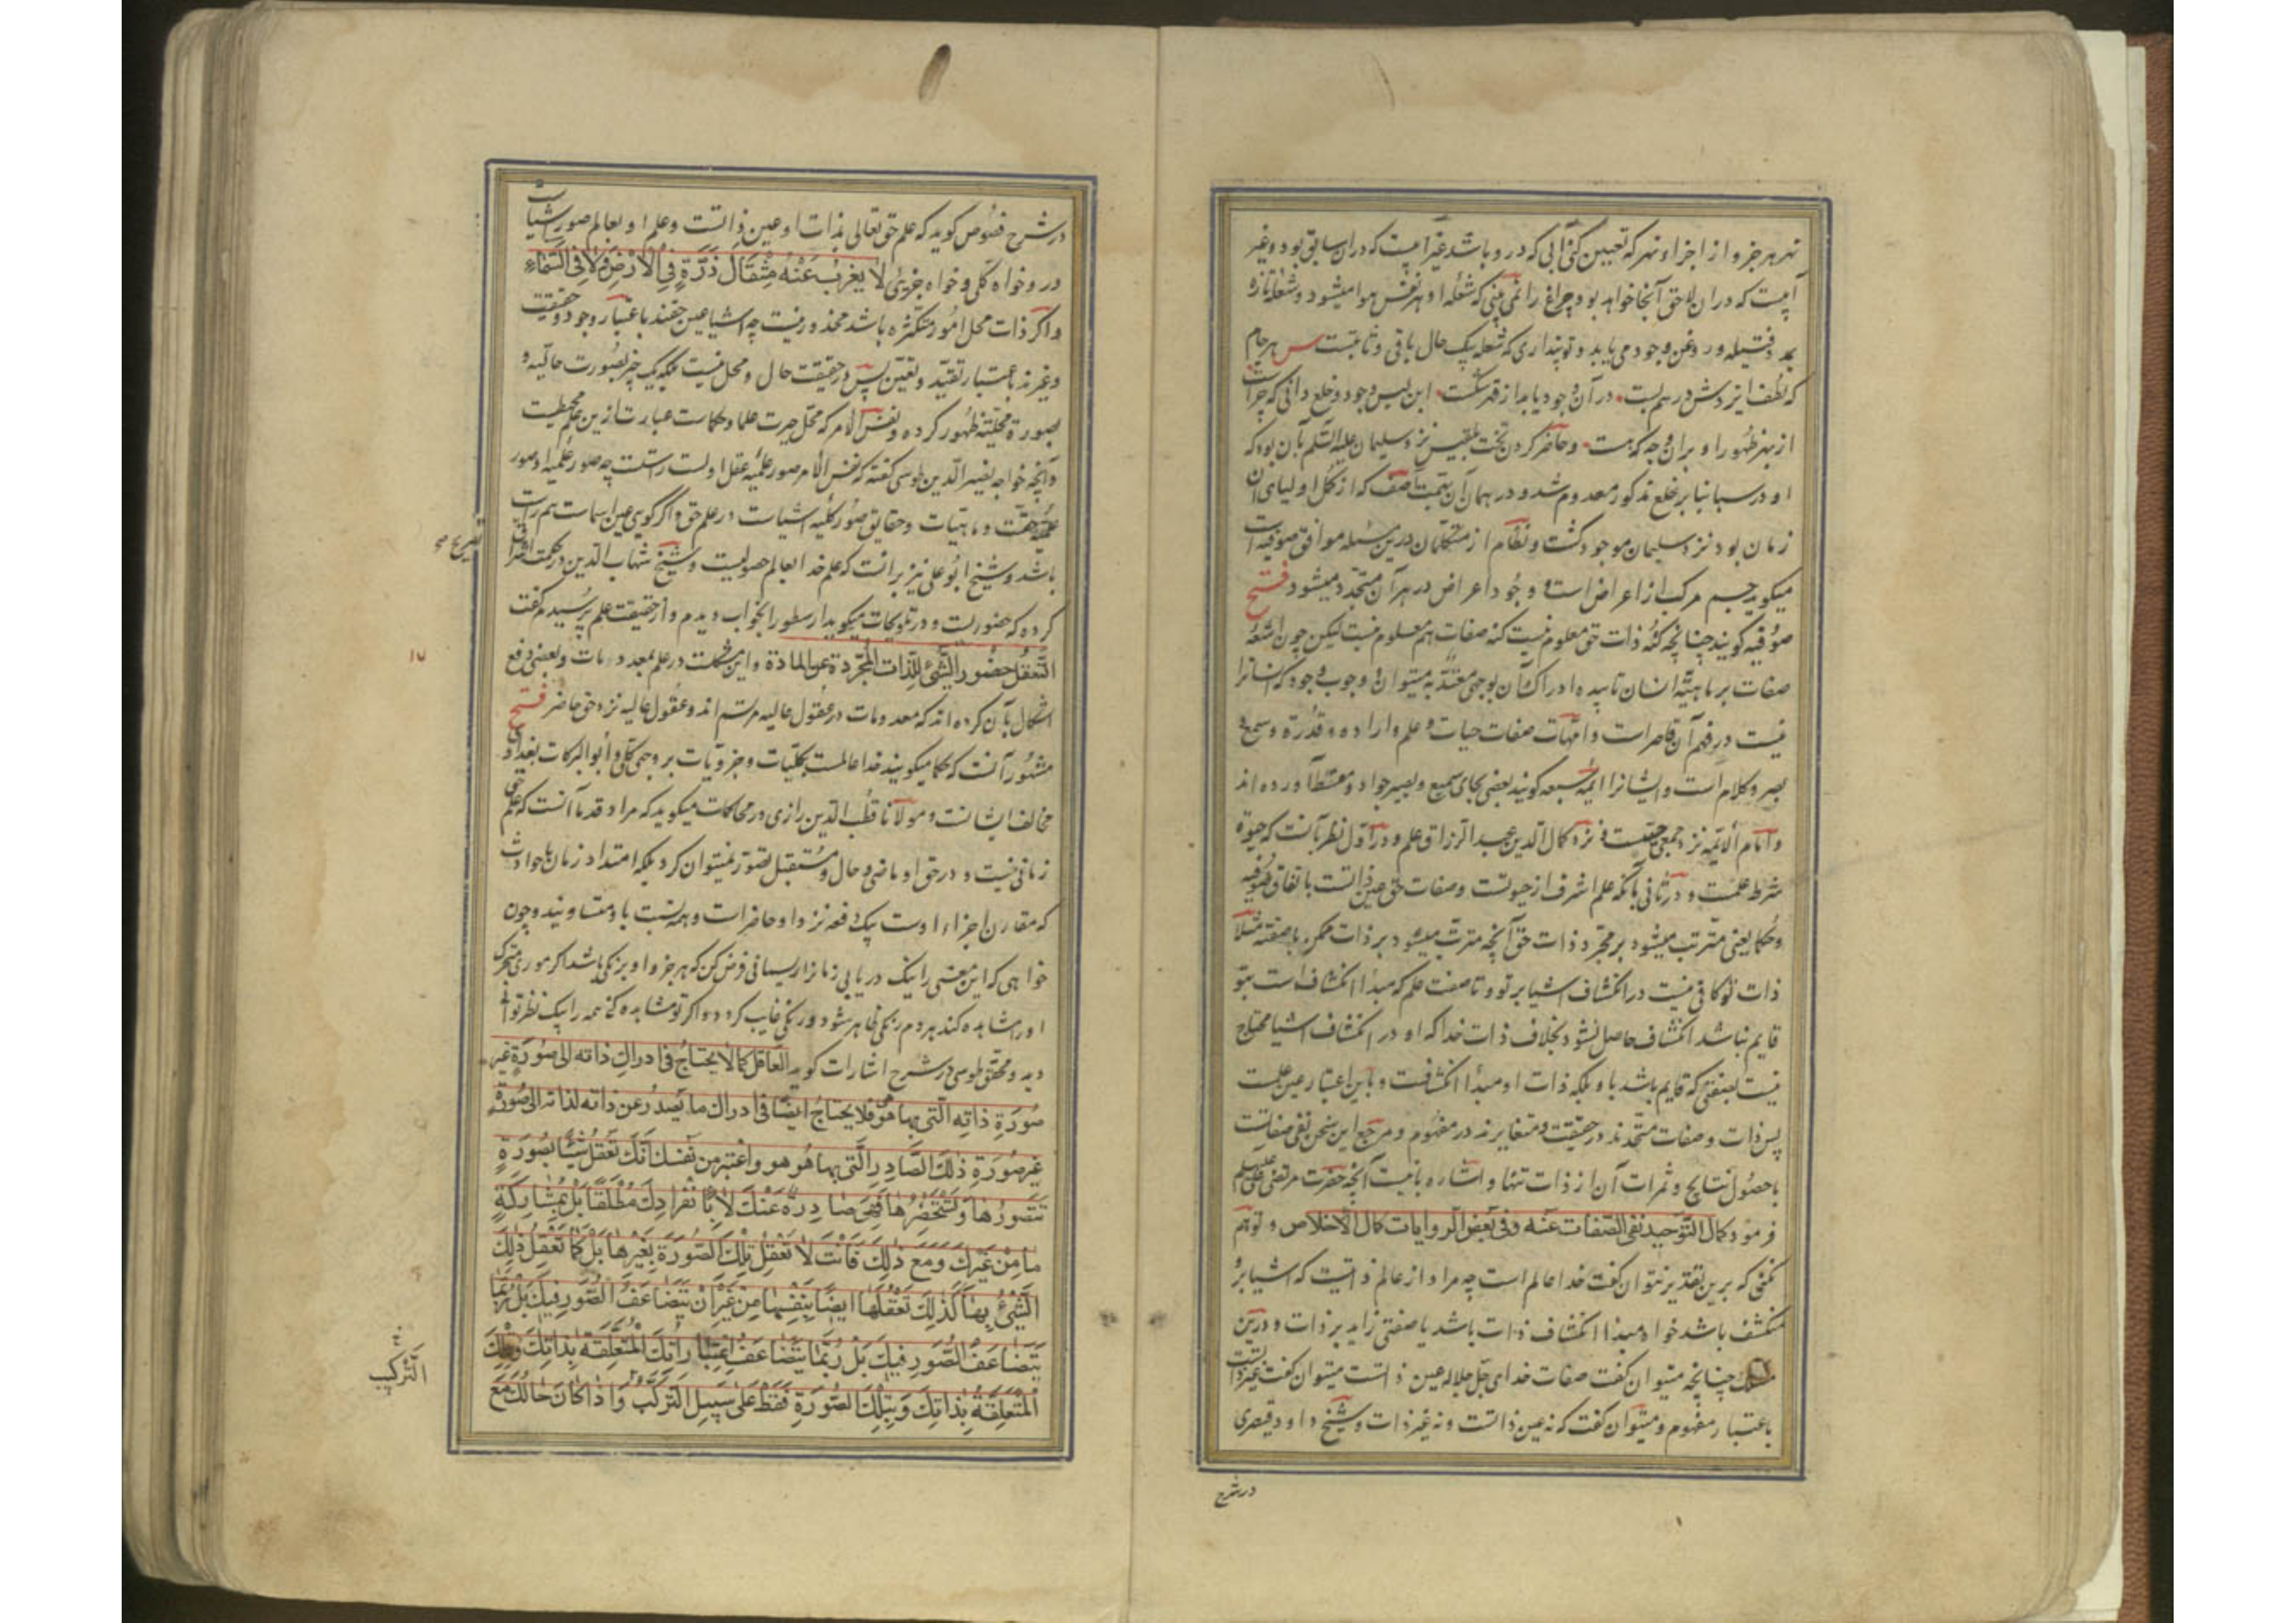 نهر هر جزو از اجزاء نهر که تعیین کنی آبی که در و باشد غیر آبیست که در ان سابق بود و غیر
آبیست که در ان لاحق آنجا خواهد بود چراغ را نمی بینی که شعله او هر نفس هوا میشود و شعله تازه
بمدد فتیله و روغن وجود می یابد و تو پنداری که شعله یک حال باقی و ثابتست س هر جام
که لطف ایزدش در هم بست در آن وجود یابد از قهر شکست این لبس وجود و خلع دانی که چراست
از بهر ظهور او بران وجه که هست و حاضر کردن تخت بلقیس نزد سلیمان علیه السلم بآن بود که
او در سبا بنابر خلع مذکور معدوم شد و در همان آن بهمت آصف که از کمل اولیای آن
زمان بود نزد سلیمان موجود گشت و نظام از متکلمان درین مسئله موافق صوفیه است
میگوید جسم مرکب از اعراض است و وجود اعراض در هر آن متجدد میشود فتح
صوفیه گویند چنانچه کنه ذات حق معلوم نیست کنه صفات هم معلوم نیست لیکن چون اشعه
صفات بر ماهیة انسان تابیده ادراک آن بوجهی معتد به میتوان و وجوب وجود که انسانرا
نیست در فهم آن قاصر است و امهات صفات حیات و علم و اراده و قدرة و سمع و
بصر و کلام است و ایشانرا ایمه سبعه گویند بعضی بجای سمیع و بصیر جواد و مقسط آورده اند
و امام الایمه نزد جمعی حیتست و نزد کمال الدین عبد الرزاق علم و در اول نظر بآنست که حیوة
شرط علمست و در ثانی بآنکه علم اشرف از حیوتست و صفات حق عین ذاتست باتفاق صوفیه
و حکما یعنی مترتب میشود بر مجرد ذات حق آنچه مترتب میشود بر ذات ممکن با صفته مثلا
ذات تو کافی نیست در انکشاف اشیا بر تو و تا صفت علم که مبدأ انکشاف است بتو
قایم نباشد انکشاف حاصل نشود بخلاف ذات خدا که او در انکشاف اشیا محتاج
نیست بصفتی که قایم باشد باو بلکه ذات او مبدأ انکشافست و باین اعتبار عین علمست
پس ذات و صفات متحدند در حقیقت و متغایرند در مفهوم و مرجع این سخن نفی صفاتست
با حصول نتایج و ثمرات آن از ذات تنها و اشاره باینست آنچه حضرت مرتضی علی
فرمود کمال التوحید نفی الصفات عنه و فی بعض الروایات کمال الاخلاص و توهم
نکنی که برین تقدیر نتوان گفت خدا عالم است چه مراد از عالم ذاتیست که اشیا برو
منکشف باشد خواه مبدا انکشاف ذات باشد یا صفتی زاید بر ذات و درین
چنانچه میتوان گفت صفات خدای جل جلاله عین ذاتست میتوان گفت غیر ذاتست
باعتبار مفهوم و میتوان گفت که نه عین ذاتست و نه غیر ذات و شیخ داود قیصری
در شرح
در شرح فصوص گوید که علم حق تعالی بذات او عین ذاتست و علم او بعالم صور اشیاست
در و خواه کلی و خواه جزیئ لا یعزب عنه مثقال ذرة فی الارض و لا فی السماء
و اگر ذات محل امور متکثره باشد محذور نیست چه اشیا عین حقند باعتبار وجود و حقیقت
و غیرند باعتبار تقید و تعین پس در حقیقت حال و محل نیست بلکه یک چیز بصورت حالیه و
بصورة محلیته ظهور کرده و نفس الامر که محل حیرت علما و حکماست عبارت ازین علم محیطیست
و آنچه خواجه نصیر الدین طوسی گفته که نفس الامر صور علمیه عقل اولست راستست چه صور علمیه او صور
علمیه حقست و ماهیات و حقایق صور کلیه اشیاست در علم حق و اگر گویی عین اسماست هم راست
باشد و شیخ ابو علی نیز برانست که علم خدا بعالم حصولیست و شیخ شهاب الدین در حکمت اشراق
تصریح صح
کرده که حضوریست و در تلویحات میگوید ارسطو را بخواب دیدم و از حقیقت علم پرسیدم گفت
التعقل حضور الشئ للذات المجردة عن المادة و این مشکلست در علم بمعدومات و بعضی دفع
اشکال بآن کرده اند که معدومات در عقول عالیه مرتسم اند و عقول عالیه نزد حق حاضر فتح
مشهور آنست که حکما میگویند خدا عالمست بکلیات و جزویات بر وجهی کلی و أبو البرکات بغدادی
مخالف ایشانست و مولانا قطب الدین رازی در محاکمات میگوید که مراد قدما آنست که علم حق
زمانی نیست و در حق او ماضی و حال و مستقبل تصور نمیتوان کرد بلکه امتداد زمان با حوادث
که مقارن اجزاء اوست یک دفعه نزد او حاضر است و همه نسبت باو متساویند و چون
خواهی که این معنی را نیک دریابی زمانرا ریسمانی فرض کن که هر جزو او برنگی باشد اگر موری متحرک
او را مشاهده کند هر دم رنگی ظاهر شود و رنگی غایب گردد و اگر تو مشاهده کنی همه را بیک نظر توانی
دید و محقق طوسی در شرح اشارات گوید العاقل کما لا یحتاج فی ادراک ذاته الی صورة غیر
صورة ذاته التی بها هو هو فلا یحتاج ایضا فی ادراک ما یصدر عن ذاته لذاته الی صورة
غیر صورة ذلک الصادر التی بها هو هو و اعتبر من نفسک انک تعقل شیئا بصورة
تتصورها و تستحضرها فهی صادرة عنک لا بانفرادک مطلقا بل بمشارکة
ما من غیرک و مع ذلک فانت لا تعقل تلک الصورة بغیرها بل کما تعقل ذلک
الشئ بها کذلک تعقلها ایضا بنفسها من غیر ان تتضاعف الصور فیک بل ربما
تتضاعف الصور فیک بل ربما یتضاعف اعتباراتک المتعلقة بذاتک و تلک
المتعلقة بذاتک و بتلک الصورة فقط علی سبیل الترکب و اذا کان حالک مع
الترکیب